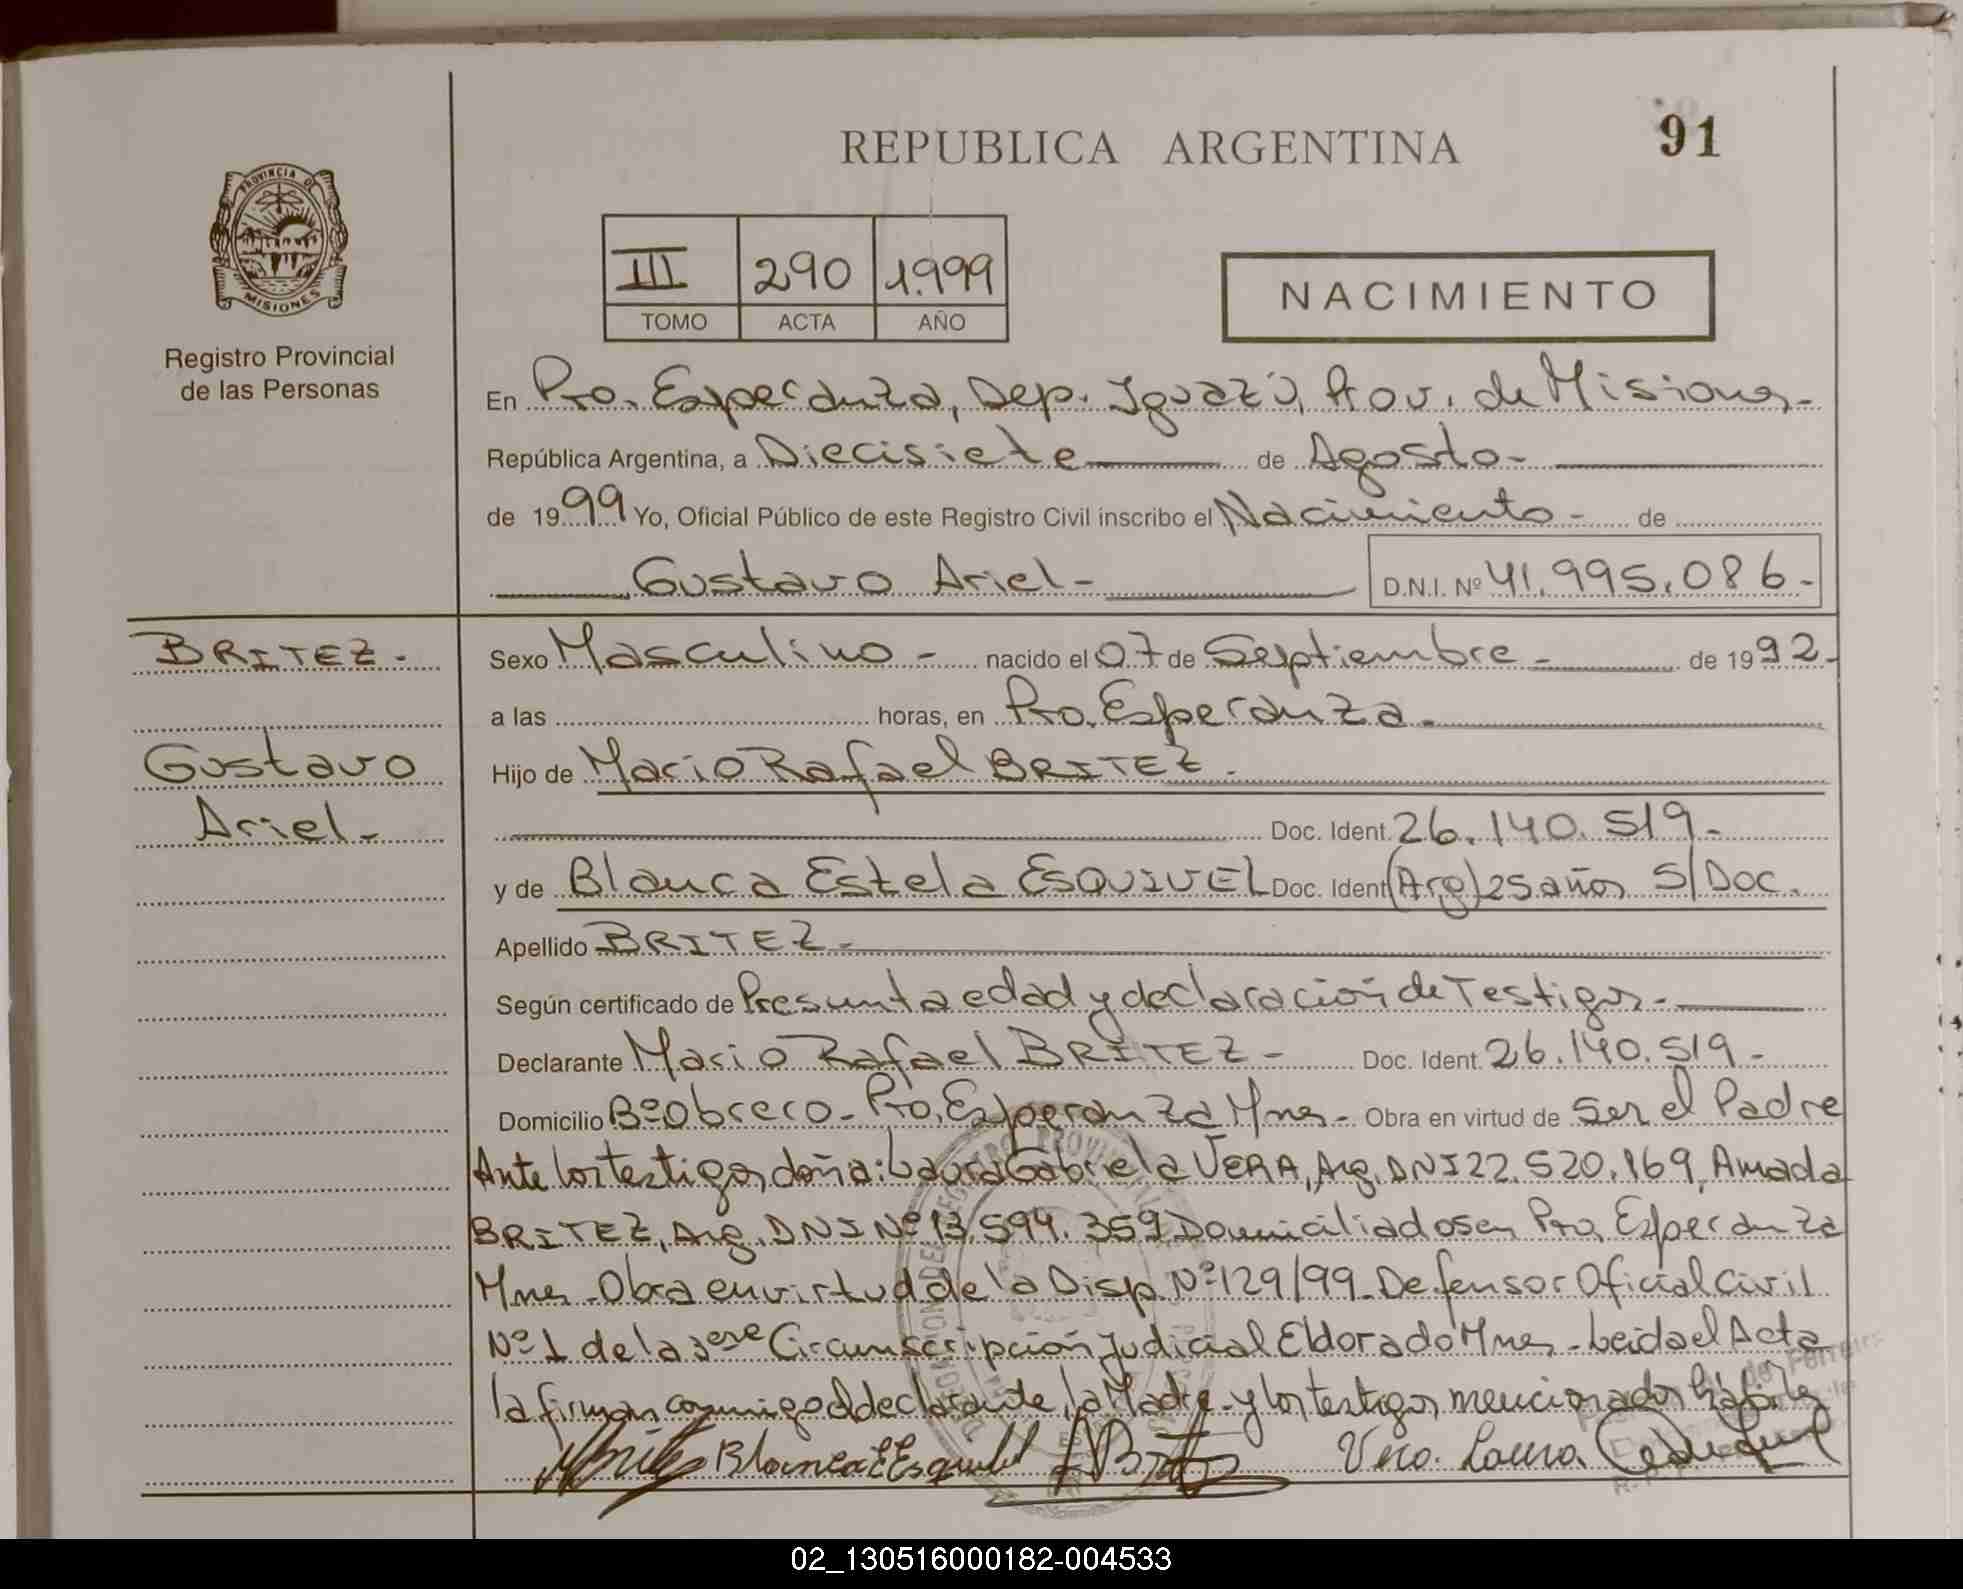 REPUBLICA ARGENTINA
91
PROVINCIA DE
MISIONES
Registro Provincial
de las Personas
III 290 1.999
TOMO ACTA AÑO
NACIMIENTO
En Pto. Esperanza, Dep. Iguazú, Prov. de Misiones-
República Argentina, a Diecisiete de Agosto-
de 1999 Yo, Oficial Público de este Registro Civil inscribo el Nacimiento- de
Gustavo Ariel- D.N.I. Nº 41.995.086-
BRITEZ-
Gustavo
Ariel-
Sexo Masculino- nacido el 07 de Septiembre- de 1992-
a las horas, en Pto. Esperanza.
Hijo de Mario Rafael BRITEZ-
Doc. Ident. 26.140.519-
y de Blanca Estela ESQUIVEL Doc. Ident (Arg) 25 años S/Doc.
Apellido BRITEZ-
Según certificado de Presunta edad y declaración de Testigos-
Declarante Mario Rafael BRITEZ- Doc. Ident. 26.140.519-
Domicilio Bº Obrero- Pto. Esperanza Mnes- Obra en virtud de Ser el Padre
Ante los testigos, doña: Laura Gabriela VERA, Arg. DNI 22.520.169, Amada
BRITEZ, Arg. DNI Nº 13.594.359 Domiciliados en Pto. Esperanza
Mnes- Obra en virtud de la Disp. Nº 129/99- Defensor Oficial Civil
Nº 1 de la 3era Circunscripción Judicial Eldorado Mnes- Leida el Acta
la firman conmigo el declarante, la Madre y los testigos mencionados hábiles
Blanca E Esquivel Vera Laura
02_130516000182-004533